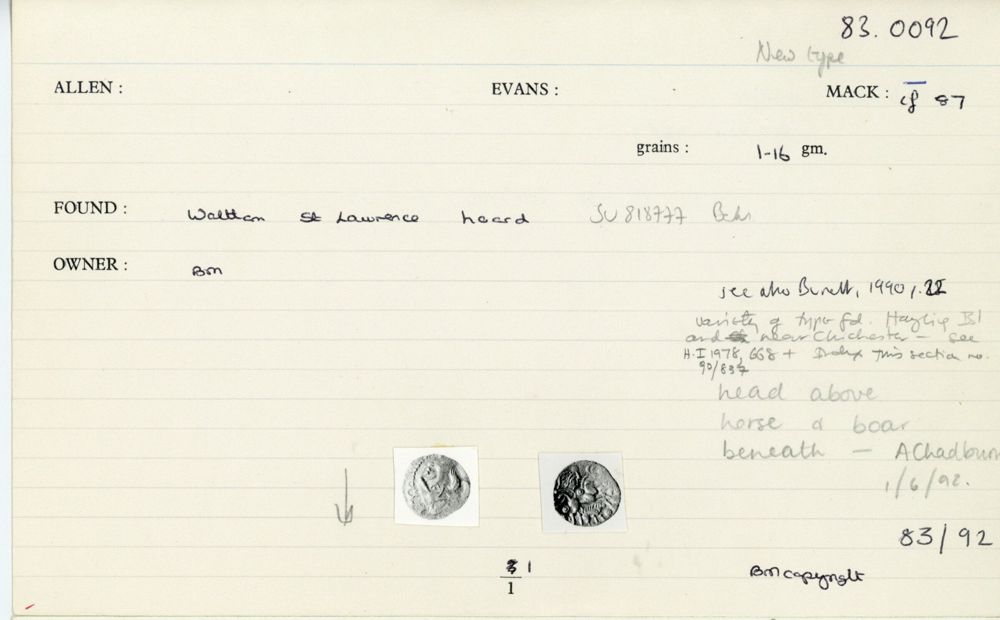 83.0092
New type
ALLEN :
EVANS :
MACK : cf 87
grains :
1-16 gm.
FOUND : Waltham St Lawrence hoard SU 818777 Berks
OWNER : BM
see also Burnett, 1990, p.
variety of type fd. Hayling Isl
and near Chichester - see
H.I 1978, 668 + Index this section no.
90/837
head above
horse & boar
beneath - A Chadburn
1/6/92.
83/92
1
1
BM copyright